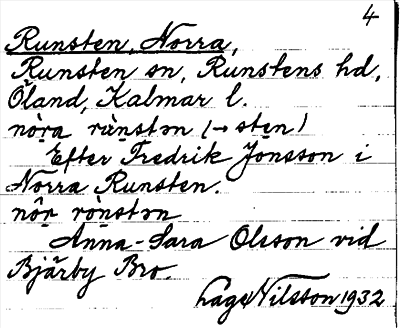 4
Runsten, Norra,
Runsten sn, Runstens hd,
Öland, Kalmar l.
nòra rùnstən (→ sten)
Efter Fredrik Jonsson i
Norra Runsten.
nôr rònstən
Anna-Sara Olsson vid
Bjärby Bro.
Låge Nilsson 1932